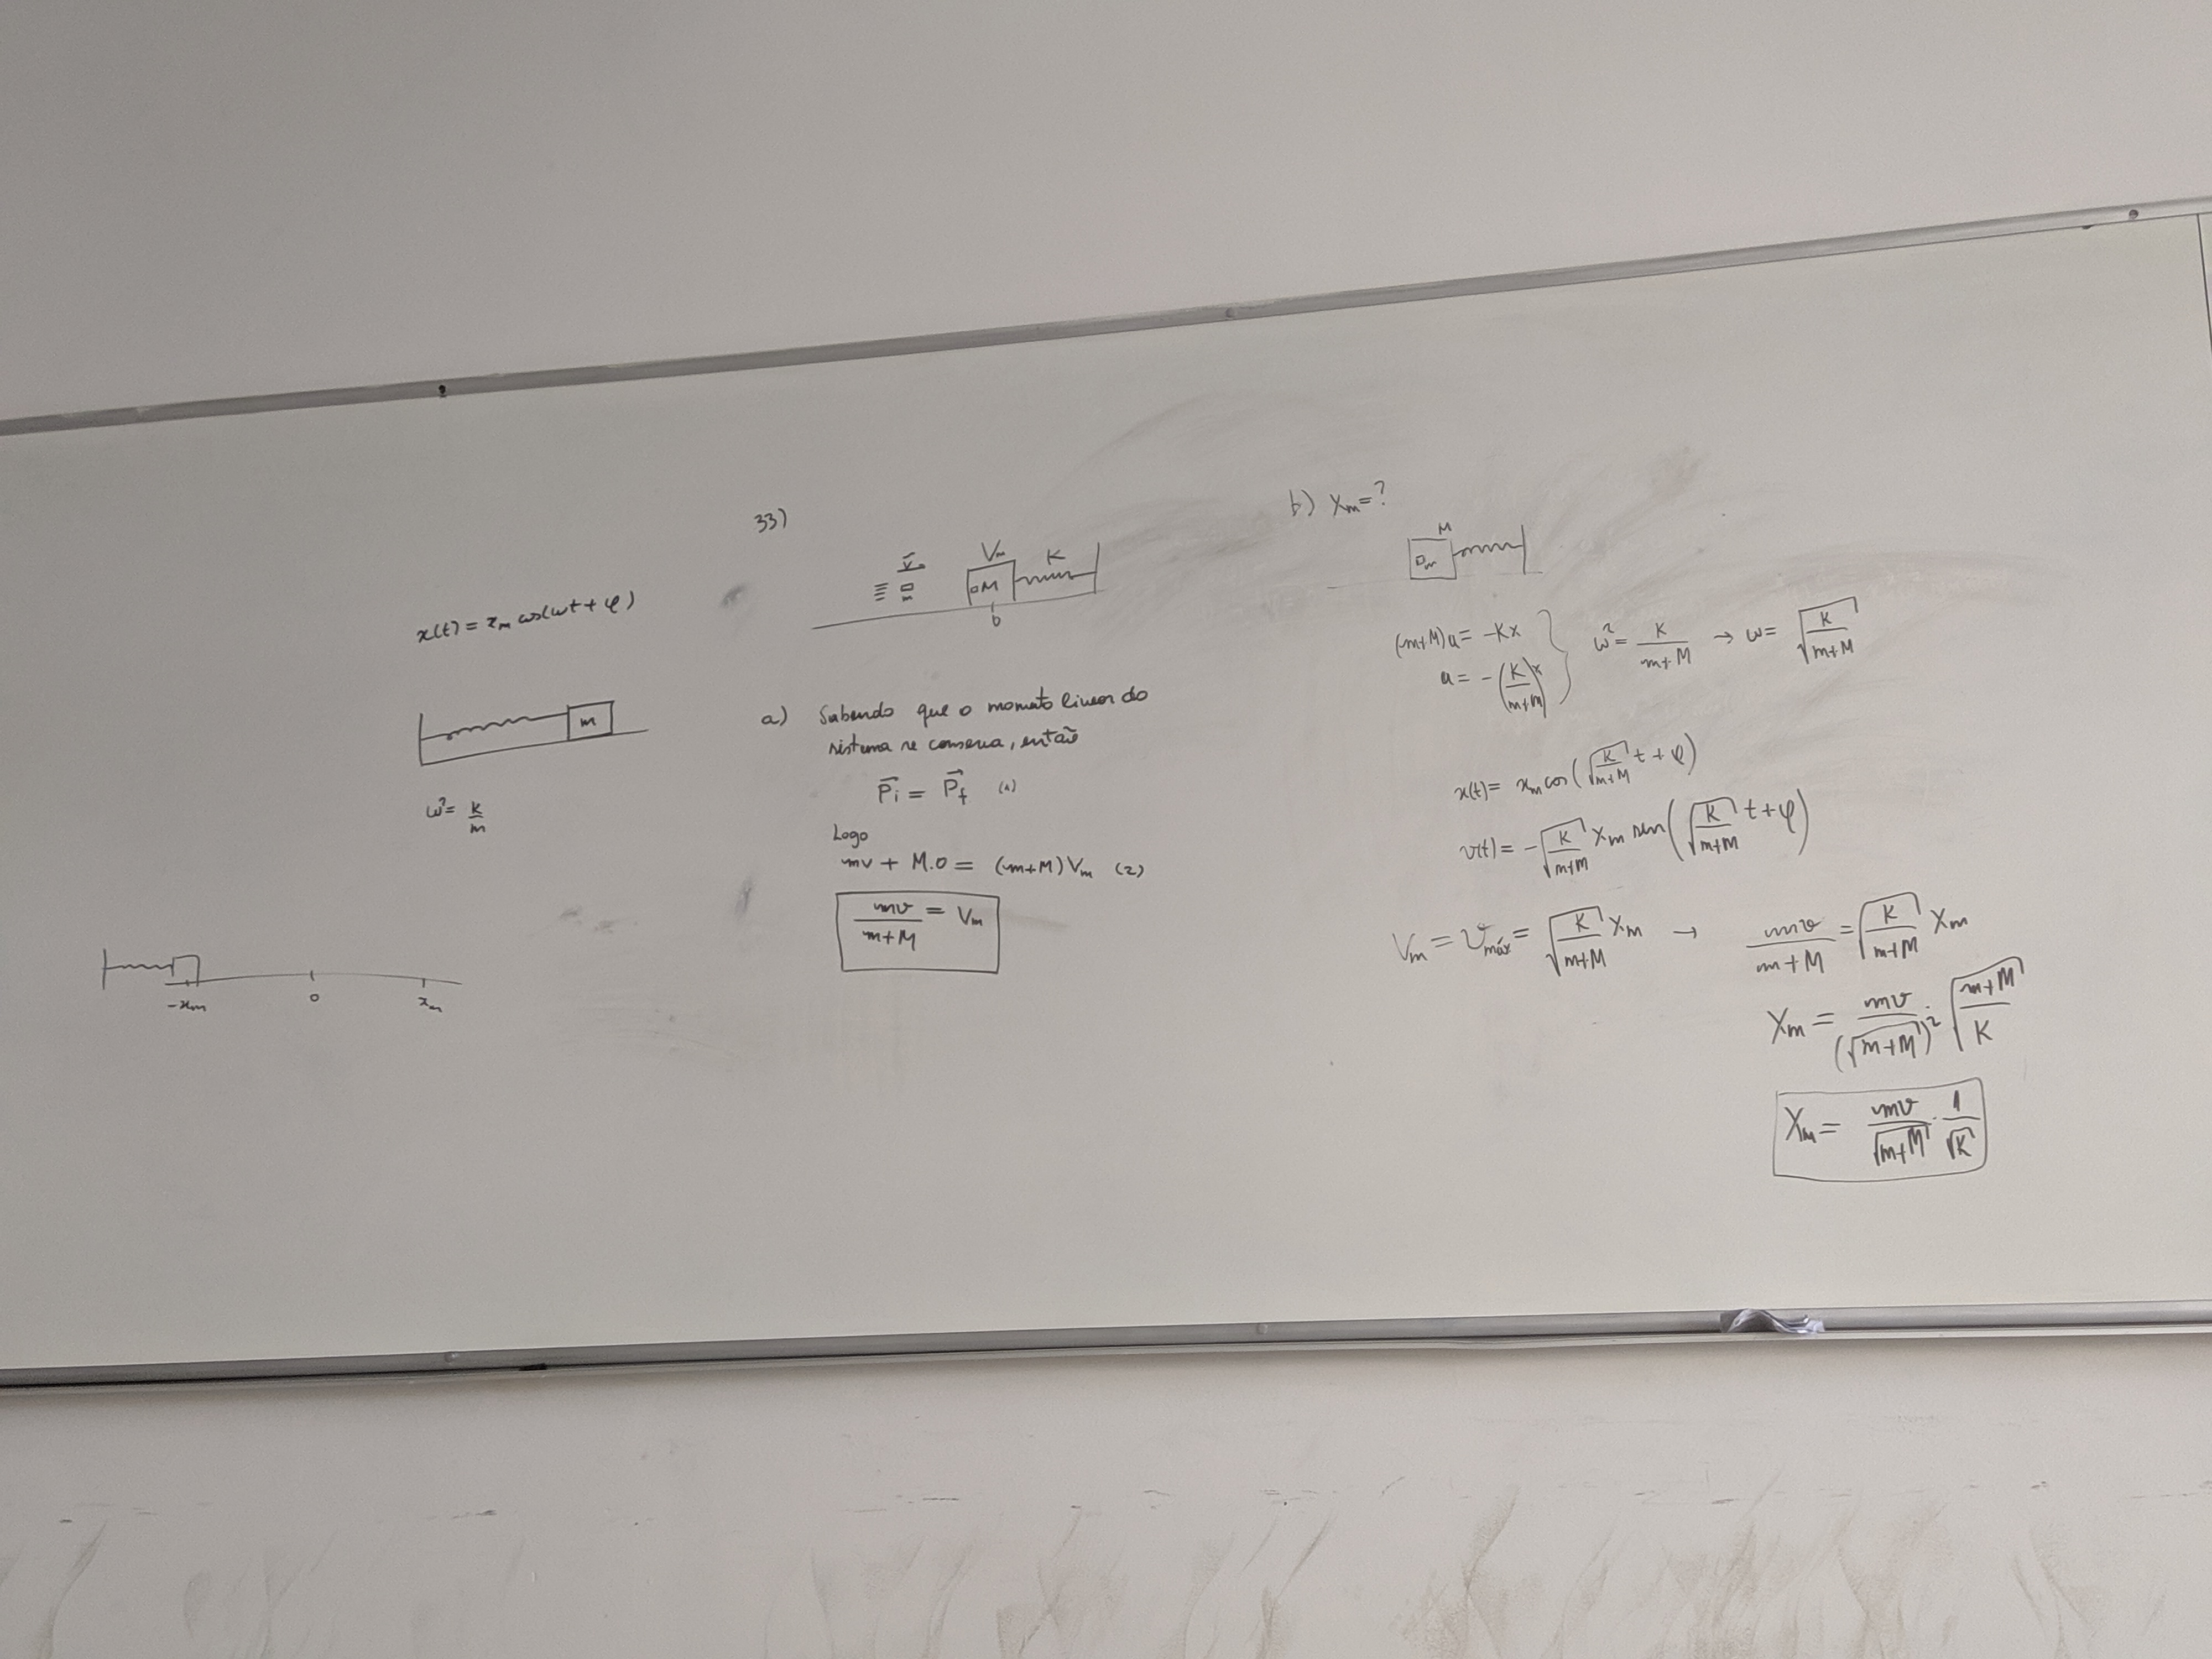 x(t) = x_m cos(ωt + φ)
m
ω² = K/m
-x_m 0 x_m
33)
v V_m K
m M
0
a) Sabendo que o momento linear do
sistema se conserva, então
P⃗i = P⃗f (1)
Logo
mv + M.0 = (m+M)V_m (2)
mv/(m+M) = V_m
b) X_m = ?
M
m
(m+M)a = -Kx
a = -(K/(m+M))x } ω² = K/(m+M) → ω = √(K/(m+M))
x(t) = x_m cos(√(K/(m+M)) t + φ)
v(t) = -√(K/(m+M)) X_m sen(√(K/(m+M)) t + φ)
V_m = v_máx = √(K/(m+M)) X_m → mv/(m+M) = √(K/(m+M)) X_m
X_m = mv/(√(m+M))² · √((m+M)/K)
X_m = mv/√(m+M) · 1/√K